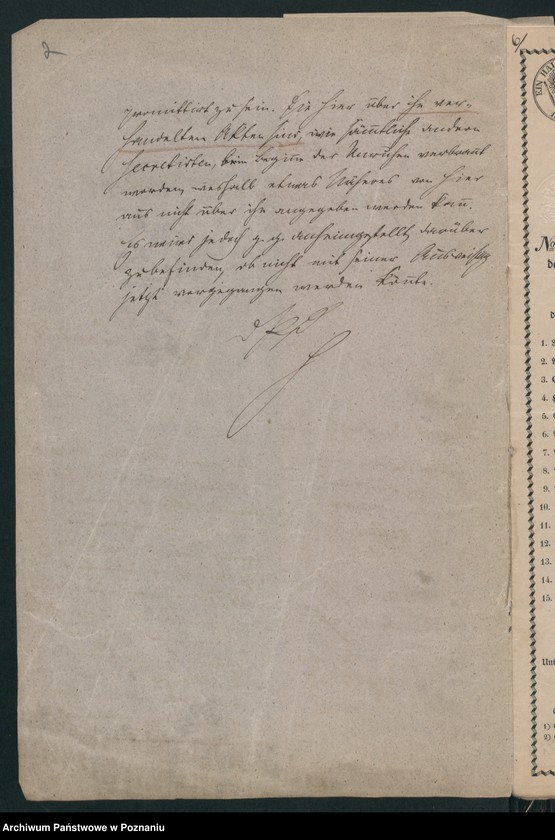 2
promittirt zu sein. Die hier über ihn ver-
handelten Akten sind, wie sämmtliche andern
beim Beginn der Unruhen verbrannt
worden, weshalb etwas Näheres von hier
aus nicht über ihn angegeben werden kann.
jedoch g. g. anheimgestellt, darüber
zu befinden, ob nicht mit seiner Ausweisung
jetzt vorgegangen werden könnte.
6/
EIN HAL
No
de
d
1.
2.
3.
4.
5.
6.
7.
8.
9.
10.
11.
12.
13.
14.
15.
Unt
1)
2)
Archiwum Państwowe w Poznaniu